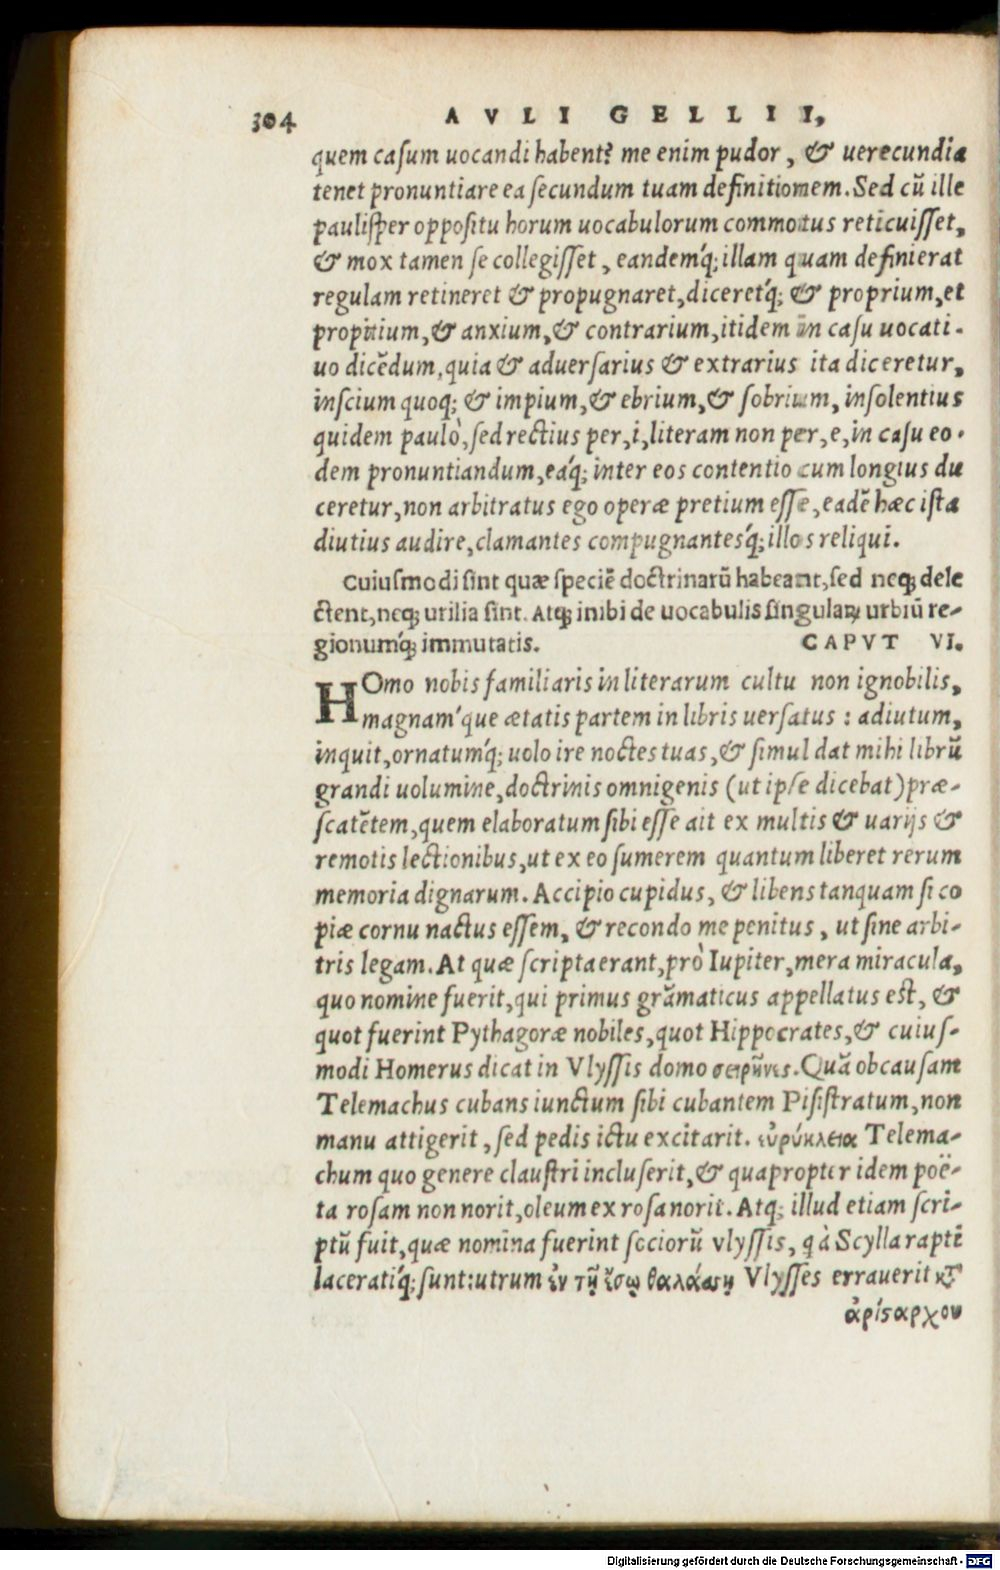 304 AVLI GELLII,
quem caſum uocandi habent? me enim pudor, & uerecundia
tenet pronuntiare ea ſecundum tuam definitionem. Sed cũ ille
pauliſper oppoſitu horum uocabulorum commotus reticuiſſet,
& mox tamen ſe collegiſſet, eandem'q; illam quam definierat
regulam retineret & propugnaret, diceret'q; & proprium, et
propitium, & anxium, & contrarium, itidem in caſu uocati-
uo dicẽdum, quia & aduerſarius & extrarius ita diceretur,
inſcium quoq; & impium, & ebrium, & ſobrium, inſolentius
quidem paulò, ſed rectius per, i, literam non per, e, in caſu eo-
dem pronuntiandum, ea'q; inter eos contentio cum longius du
ceretur, non arbitratus ego operæ pretium eſſe, eadẽ hæc iſta
diutius audire, clamantes compugnantes'q; illos reliqui.
Cuiuſmodi ſint quæ ſpeciẽ doctrinarũ habeant, ſed neq; dele
ctent, neq; utilia ſint. Atq; inibi de uocabulis ſingularꝝ urbiũ re-
gionum'q; immutatis. CAPVT VI.
HOmo nobis familiaris in literarum cultu non ignobilis,
magnam'que ætatis partem in libris uerſatus : adiutum,
inquit, ornatum'q; uolo ire noctes tuas, & ſimul dat mihi librũ
grandi uolumine, doctrinis omnigenis (ut ipſe dicebat) præ-
ſcatẽtem, quem elaboratum ſibi eſſe ait ex multis & uarijs &
remotis lectionibus, ut ex eo ſumerem quantum liberet rerum
memoria dignarum. Accipio cupidus, & libens tanquam ſi co
piæ cornu nactus eſſem, & recondo me penitus, ut ſine arbi-
tris legam. At quæ ſcripta erant, prò Iupiter, mera miracula,
quo nomine fuerit, qui primus grãmaticus appellatus eſt, &
quot fuerint Pythagoræ nobiles, quot Hippocrates, & cuiuſ-
modi Homerus dicat in Vlyſſis domo σειρῆνες. Quã ob cauſam
Telemachus cubans iunctum ſibi cubantem Piſiſtratum, non
manu attigerit, ſed pedis ictu excitarit. εὐρύκλεια Telema-
chum quo genere clauſtri incluſerit, & quapropter idem poë-
ta roſam non norit, oleum ex roſa norit. Atq; illud etiam ſcri-
ptũ fuit, quæ nomina fuerint ſociorũ vlyſſis, q à Scylla rapti
lacerati'q; ſunt: utrum ἐν τῇ ἔσῳ θαλάσσῃ Vlyſſes errauerit κτ̃
ἀρίσαρχου
Digitalisierung gefördert durch die Deutsche Forschungsgemeinschaft - DFG